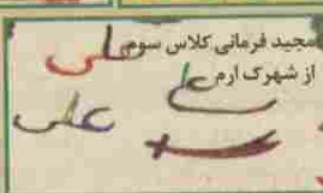 مجید فرمانی کلاس سوم
از شهرک ارم
علی
علی